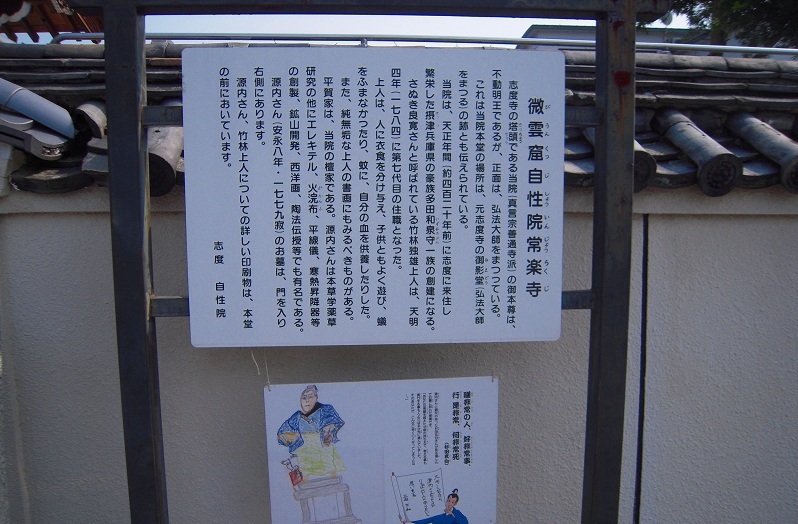 微雲窟自性院常楽寺
びうんくつじしょういんじょうらくじ
志度寺の塔頭である当院(真言宗善通寺派)の御本尊は、
不動明王であるが、正面は、弘法大師をまつっている。
これは当院本堂の場所は、元志度寺の御影堂(弘法大師
をまつる)の跡とも伝えられている。
当院は、天正年間(約四百二十年前)に志度に来住し
繁栄した摂津兵庫県の豪族多田和泉守一族の創建になる。
さぬき良寛さんと呼ばれている竹林独雄上人は、天明
四年(一七八四)に第七代目の住職となった。
上人は、人に衣食を分け与え、子供ともよく遊び、蟻
をふまなかったり、蚊に、自分の血を供養したりした。
また、純無垢な上人の書画にもみるべきものがある。
平賀家は、当院の檀家である。源内さんは本草学薬草
研究の他にエレキテル、火浣布、平線儀、寒熱昇降器等
の創製、鉱山開発、西洋画、陶法伝授等でも有名である。
源内さん(安永八年・一七七九寂)のお墓は、門を入り
右側にあります。
源内さん、竹林上人についての詳しい印刷物は、本堂
の前においています。
志度 自性院
嗟非常の人、好非常事、
行是非常、何非常死
(杉田玄白)